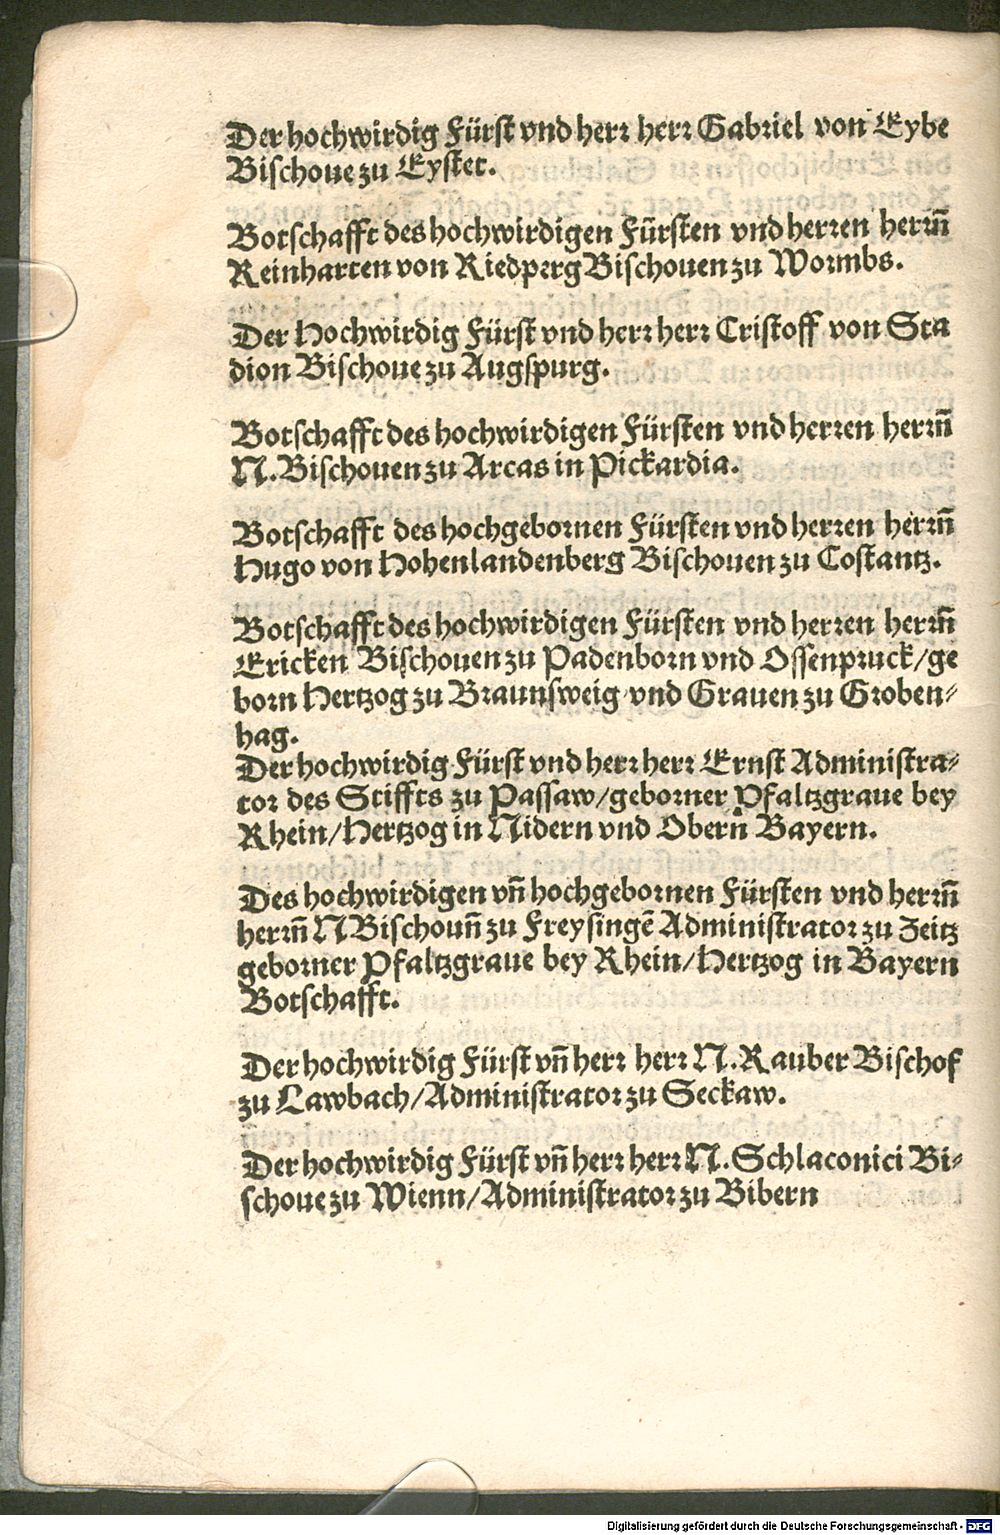 Der hochwirdig Fürst vnd herr herr Gabriel von Eybe
Bischoue zu Eystet.
Botschafft des hochwirdigen Fürsten vnd herren herrñ
Reinharten von Riedperg Bischouen zu Wormbs.
Der Hochwirdig Fürst vnd herr herr Cristoff von Sta
dion Bischoue zu Augspurg.
Botschafft des hochwirdigen Fürsten vnd herren herrñ
N. Bischouen zu Arcas in Pickardia.
Botschafft des hochgebornen Fürsten vnd herren herrñ
Hugo von Hohenlandenberg Bischouen zu Costantz.
Botschafft des hochwirdigen Fürsten vnd herren herrñ
Ericken Bischouen zu Padenborn vnd Ossenpruck/ge
born Hertzog zu Braunsweig vnd Grauen zu Groben⸗
hag.
Der hochwirdig Fürst vnd herr herr Ernst Administra⸗
tor des Stiffts zu Passaw/geborner Pfaltzgraue bey
Rhein/Hertzog in Nidern vnd Obern Bayern.
Des hochwirdigen vñ hochgebornen Fürsten vnd herrñ
herrñ N Bischouñ zu Freysingē Administrator zu Zeitz
geborner Pfaltzgraue bey Rhein/Hertzog in Bayern
Botschafft.
Der hochwirdig Fürst vñ herr herr N. Rauber Bischof
zu Lawbach/Administrator zu Seckaw.
Der hochwirdig Fürst vñ herr herr N. Schlaconici Bi⸗
schoue zu Wienn/Administrator zu Bibern
Digitalisierung gefördert durch die Deutsche Forschungsgemeinschaft - DFG